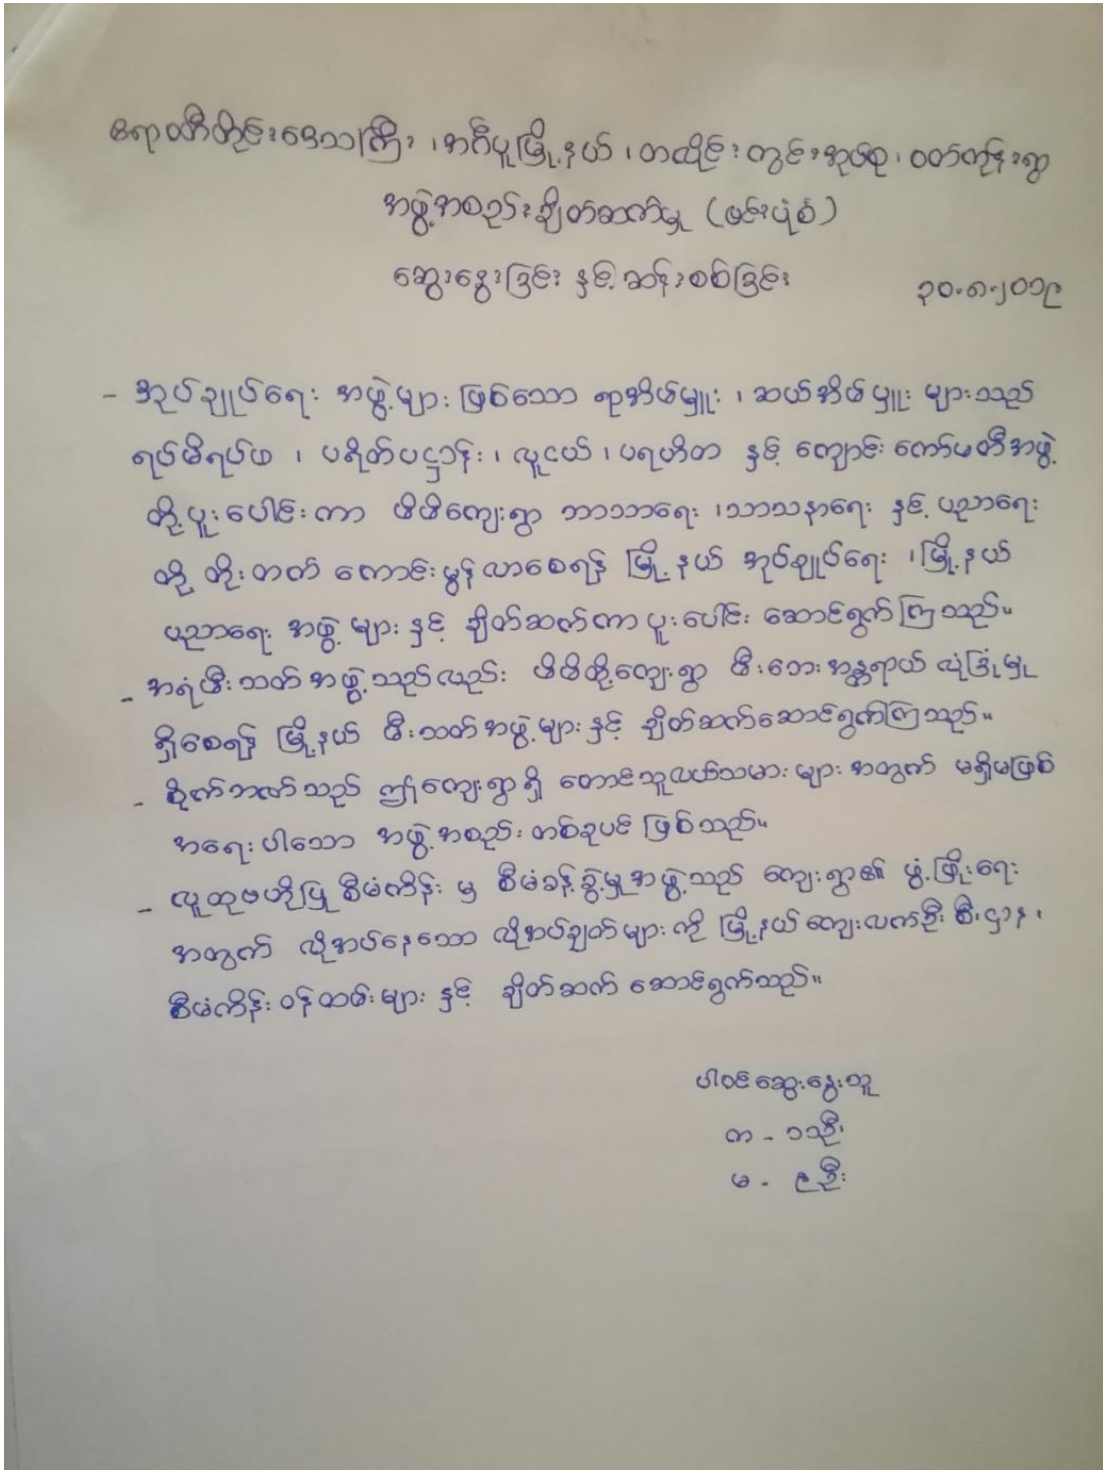 ဧရာဝတီတိုင်းဒေသကြီး ၊ အင်္ဂပူမြို့နယ် ၊ တလိုင်းကွင်းအုပ်စု ၊ ဝတ်ကုန်းရွာ
အဖွဲ့အစည်းချိတ်ဆက်မှု (ဗင်းပုံစံ)
ဆွေးနွေးခြင်း နှင့် ဆန်းစစ်ခြင်း ၃၀.၈.၂၀၁၉
- အုပ်ချုပ်ရေး အဖွဲ့များ ဖြစ်သော ရာအိမ်မှူး ၊ ဆယ်အိမ်မှူး များသည်
ရပ်မိရပ်ဖ ၊ ပရိတ်ပဌာန်း ၊ လူငယ် ၊ ပရဟိတ နှင့် ကျောင်း ကော်မတီအဖွဲ့
တို့ ပူးပေါင်းကာ မိမိကျေးရွာ ဘာသာရေး ၊သာသနာရေး နှင့် ပညာရေး
တို့ တိုးတက် ကောင်းမွန်လာစေရန် မြို့နယ် အုပ်ချုပ်ရေး ၊မြို့နယ်
ပညာရေး အဖွဲ့ များ နှင့် ချိတ်ဆက်ကာ ပူးပေါင်း ဆောင်ရွက်ကြသည်။
- အရံမီးသတ် အဖွဲ့သည်လည်း မိမိတို့ကျေးရွာ မီးဘေးအန္တရာယ် လုံခြုံမှု
ရှိစေရန် မြို့နယ် မီးသတ်အဖွဲ့များ နှင့် ချိတ်ဆက်ဆောင်ရွက်ကြသည်။
- စိုက်ဘဏ်သည် ဤကျေးရွာရှိ တောင်သူလယ်သမား များ အတွက် မရှိမဖြစ်
အရေးပါသော အဖွဲ့အစည်း တစ်ခုပင် ဖြစ်သည်။
- လူထုဗဟိုပြု စီမံကိန်း မှ စီမံခန့်ခွဲမှုအဖွဲ့သည် ကျေးရွာ၏ ဖွံ့ဖြိုးရေး
အတွက် လိုအပ်နေသော လိုအပ်ချက်များ ကို မြို့နယ်ကျေးလက်ဦးစီးဌာန ၊
စီမံကိန်း ဝန်ထမ်းများ နှင့် ချိတ်ဆက် ဆောင်ရွက်သည်။
ပါဝင်ဆွေးနွေးသူ
က - ၁၁ဦး
မ - ၉ဦး